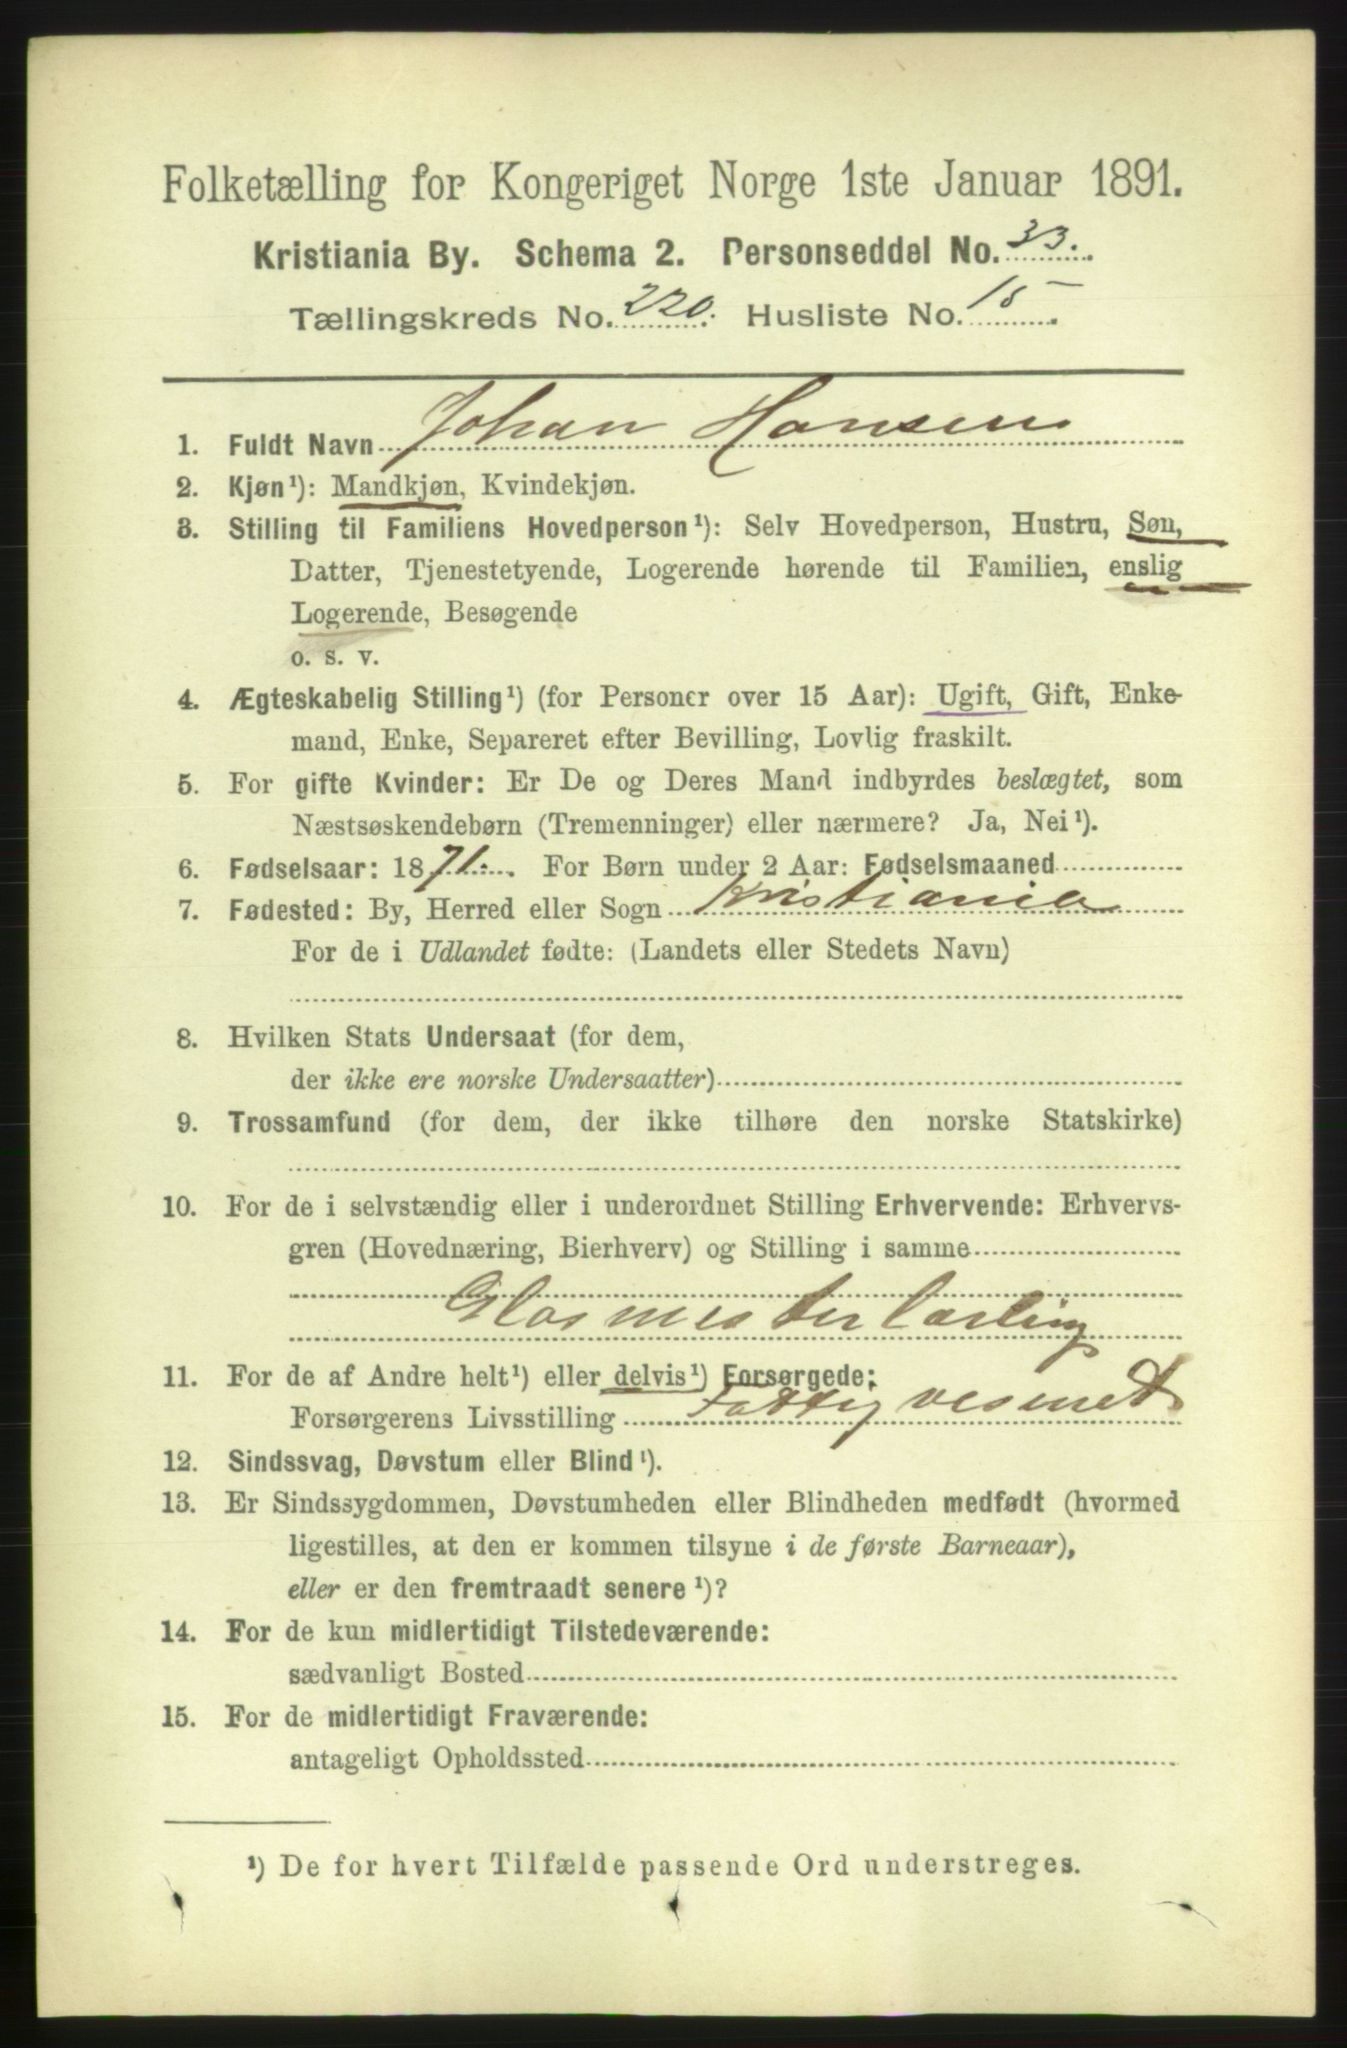 Folketælling for Kongeriget Norge 1ste Januar 1891.
Kristiania By. Schema 2. Personseddel No. 33.
Tællingskreds No. 220. Husliste No. 15
1. Fuldt Navn Johan Hansen
2. Kjøn¹): Mandkjøn, Kvindekjøn.
3. Stilling til Familiens Hovedperson¹): Selv Hovedperson, Hustru, Søn,
Datter, Tjenestetyende, Logerende hørende til Familien, enslig
Logerende, Besøgende
o. s. v.
4. Ægteskabelig Stilling¹) (for Personer over 15 Aar): Ugift, Gift, Enke-
mand, Enke, Separeret efter Bevilling, Lovlig fraskilt.
5. For gifte Kvinder: Er De og Deres Mand indbyrdes beslægtet, som
Næstsøskendebørn (Tremenninger) eller nærmere? Ja, Nei¹).
6. Fødselsaar: 1871. For Børn under 2 Aar: Fødselsmaaned
7. Fødested: By, Herred eller Sogn Kristiania
For de i Udlandet fødte: (Landets eller Stedets Navn)
8. Hvilken Stats Undersaat (for dem,
der ikke ere norske Undersaatter)
9. Trossamfund (for dem, der ikke tilhøre den norske Statskirke)
10. For de i selvstændig eller i underordnet Stilling Erhvervende: Erhvervs-
gren (Hovednæring, Bierhverv) og Stilling i samme
Glasmesterlærling
11. For de af Andre helt¹) eller delvis¹) Forsørgede:
Forsørgerens Livsstilling Fattigvesenet
12. Sindssvag, Døvstum eller Blind¹).
13. Er Sindssygdommen, Døvstumheden eller Blindheden medfødt (hvormed
ligestilles, at den er kommen tilsyne i de første Barneaar),
eller er den fremtraadt senere¹)?
14. For de kun midlertidigt Tilstedeværende:
sædvanligt Bosted
15. For de midlertidigt Fraværende:
antageligt Opholdssted
¹) De for hvert Tilfælde passende Ord understreges.